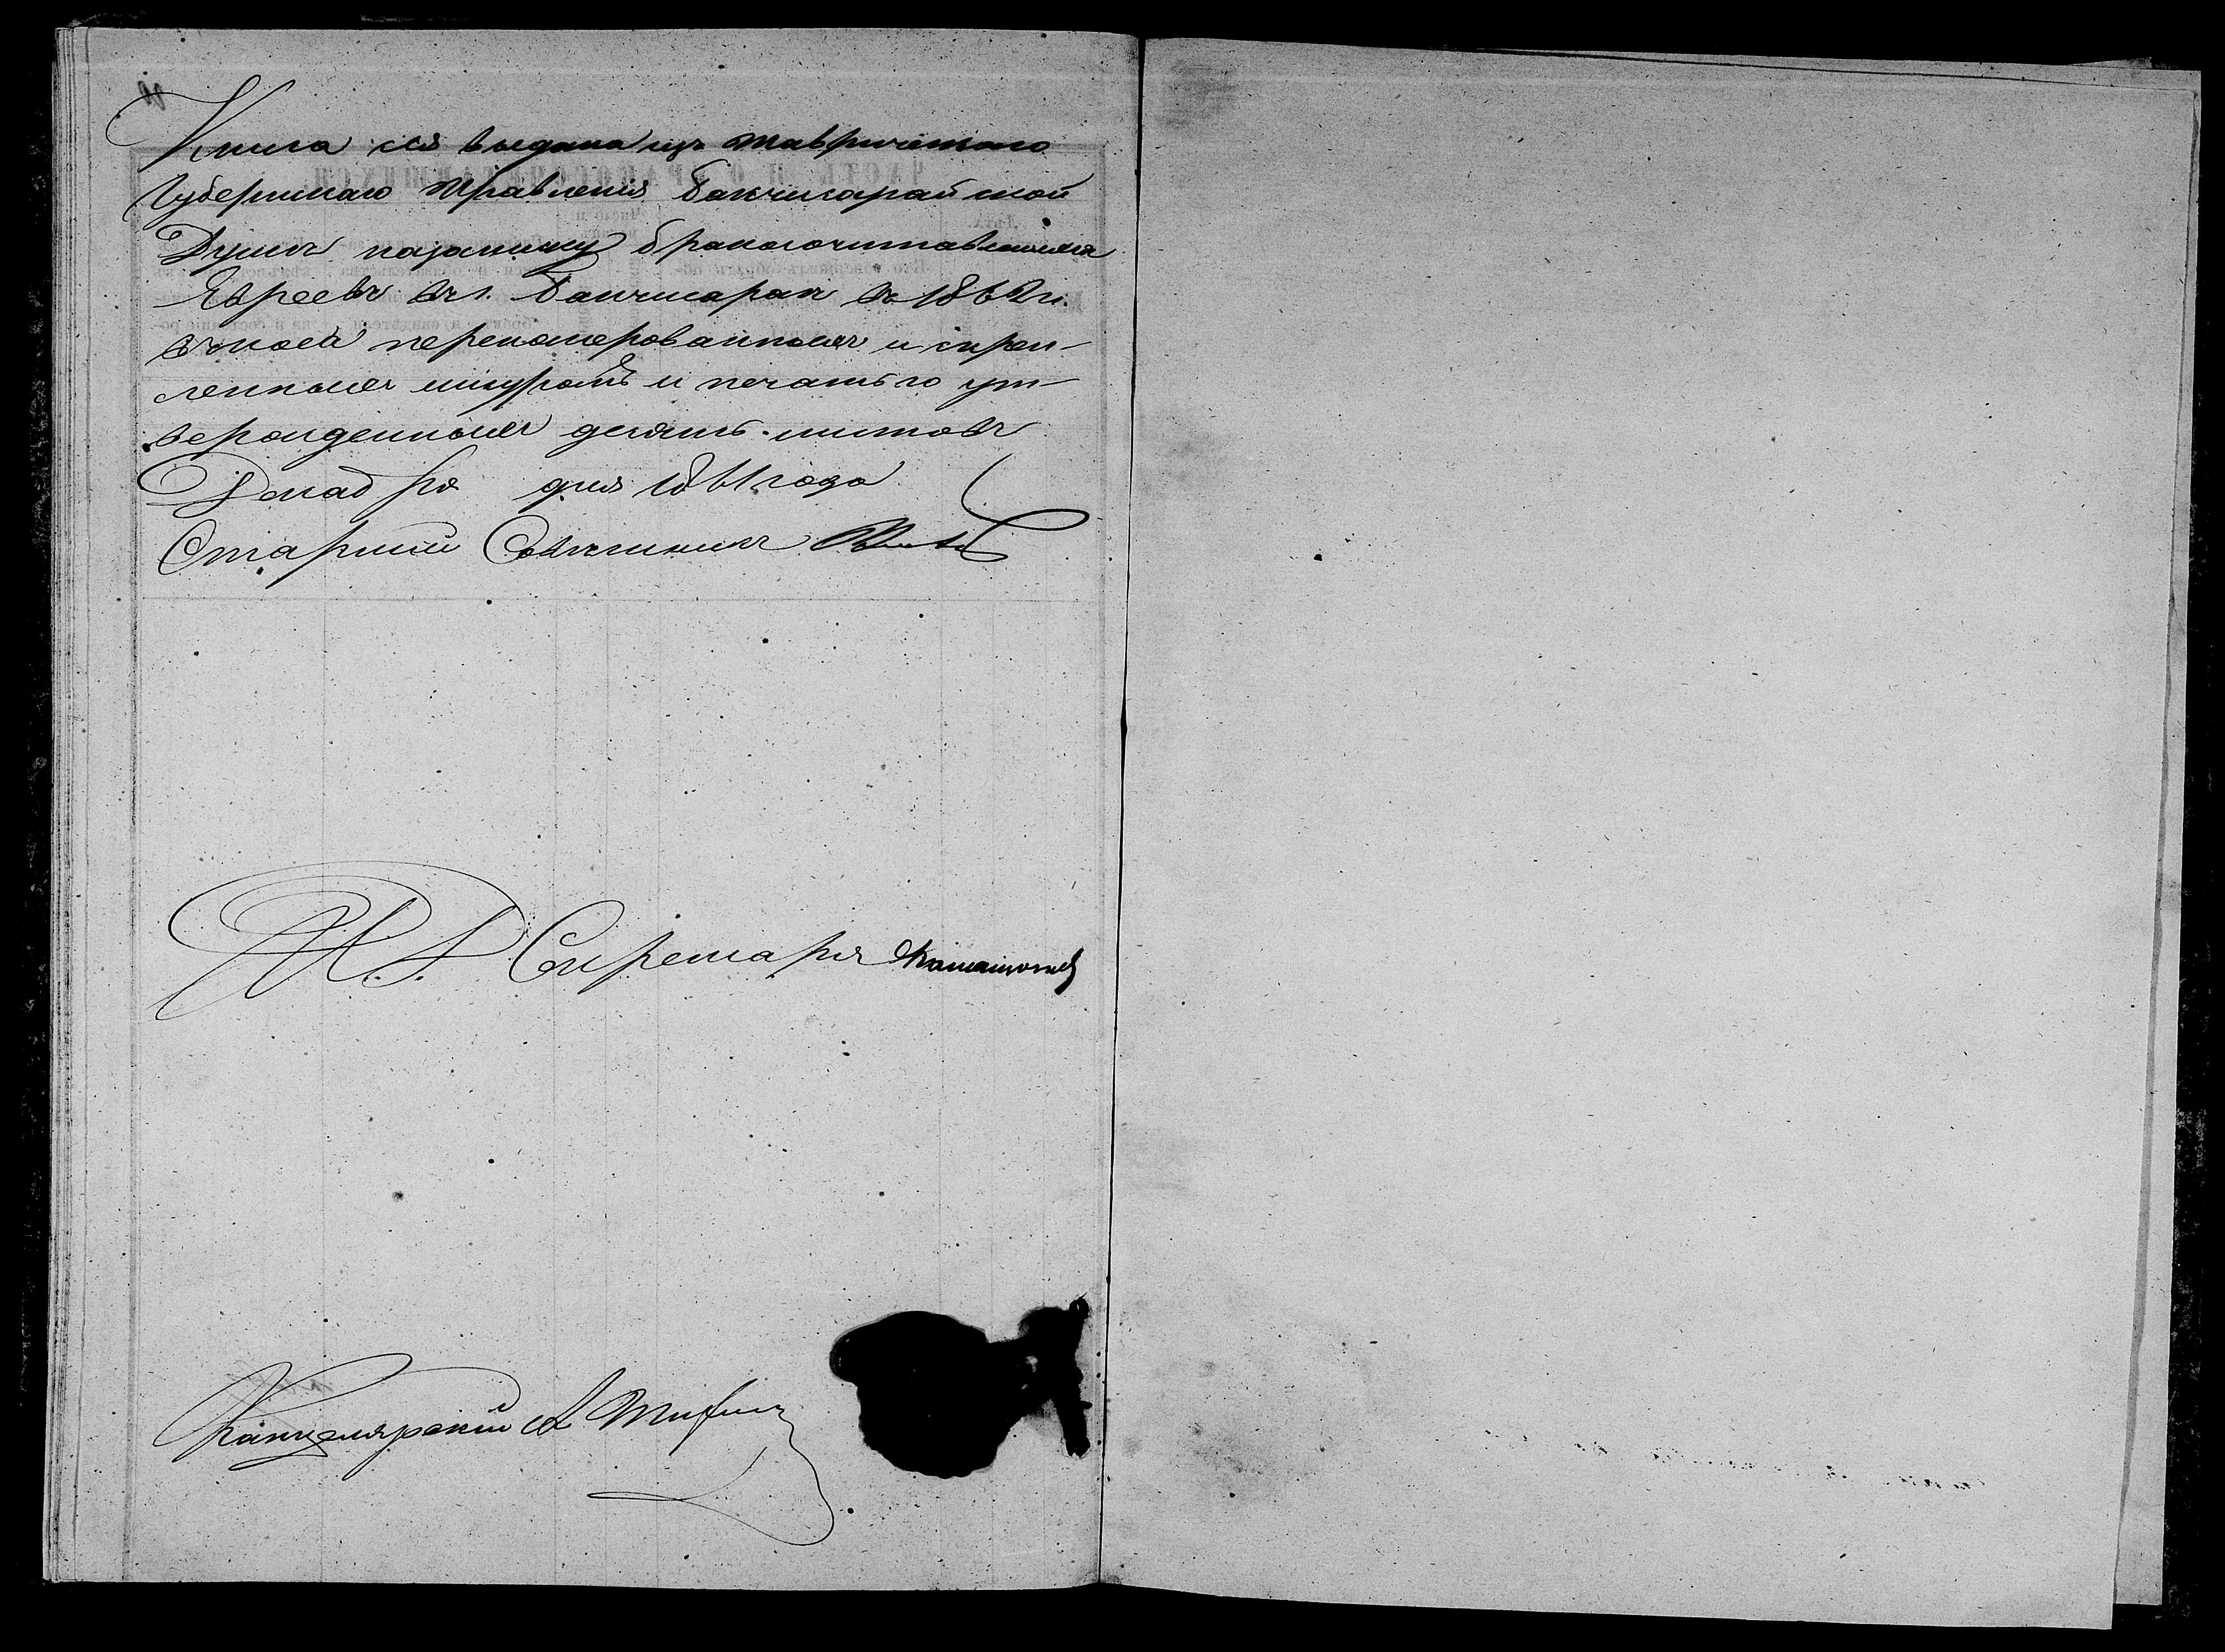 Книга сія выдана изъ Таврическаго
Губернскаго Правленія Бакчисарайской
Думѣ на записку бракосочитавшихся
Евреевъ въ г. Бакчисараѣ въ 1862 г.
въ коей перенумерованныхъ и скреп-
ленныхъ шнуромъ и печатью ут-
вержденныхъ десять листовъ
Декабря дня 1861 года
Старшій Совѣтникъ
И. д. Секретаря
Канцелярскій